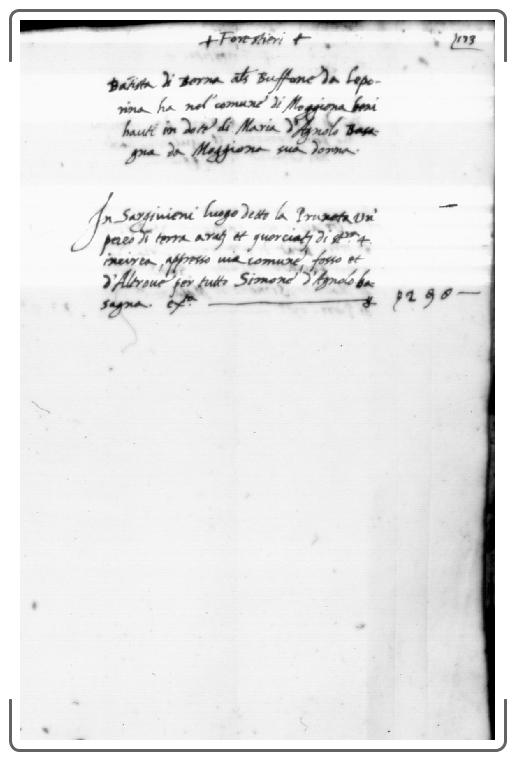 + Forestieri +
173
Batista di Berna als Buffone da Lepo-
rina ha nel comune di Moggiona beni
hauti in dote di Maria d'Agnolo Basa-
gna da Moggiona sua donna.
In Sarginieni luogo detto la Pruneta un
pezo di terra arat et querciat di 4
incirca, appresso via comune, fosso et
d'Altroue per tutto Simone d'Agnolo ba-
sagna.